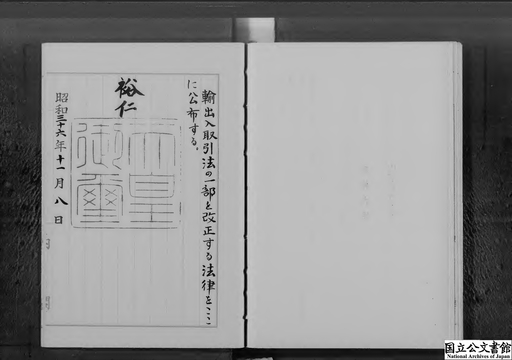 輸出入取引法の一部を改正する法律をここ
に公布する。
裕仁
天皇
御璽
昭和三十六年十一月八日
国立公文書館
National Archives of Japan